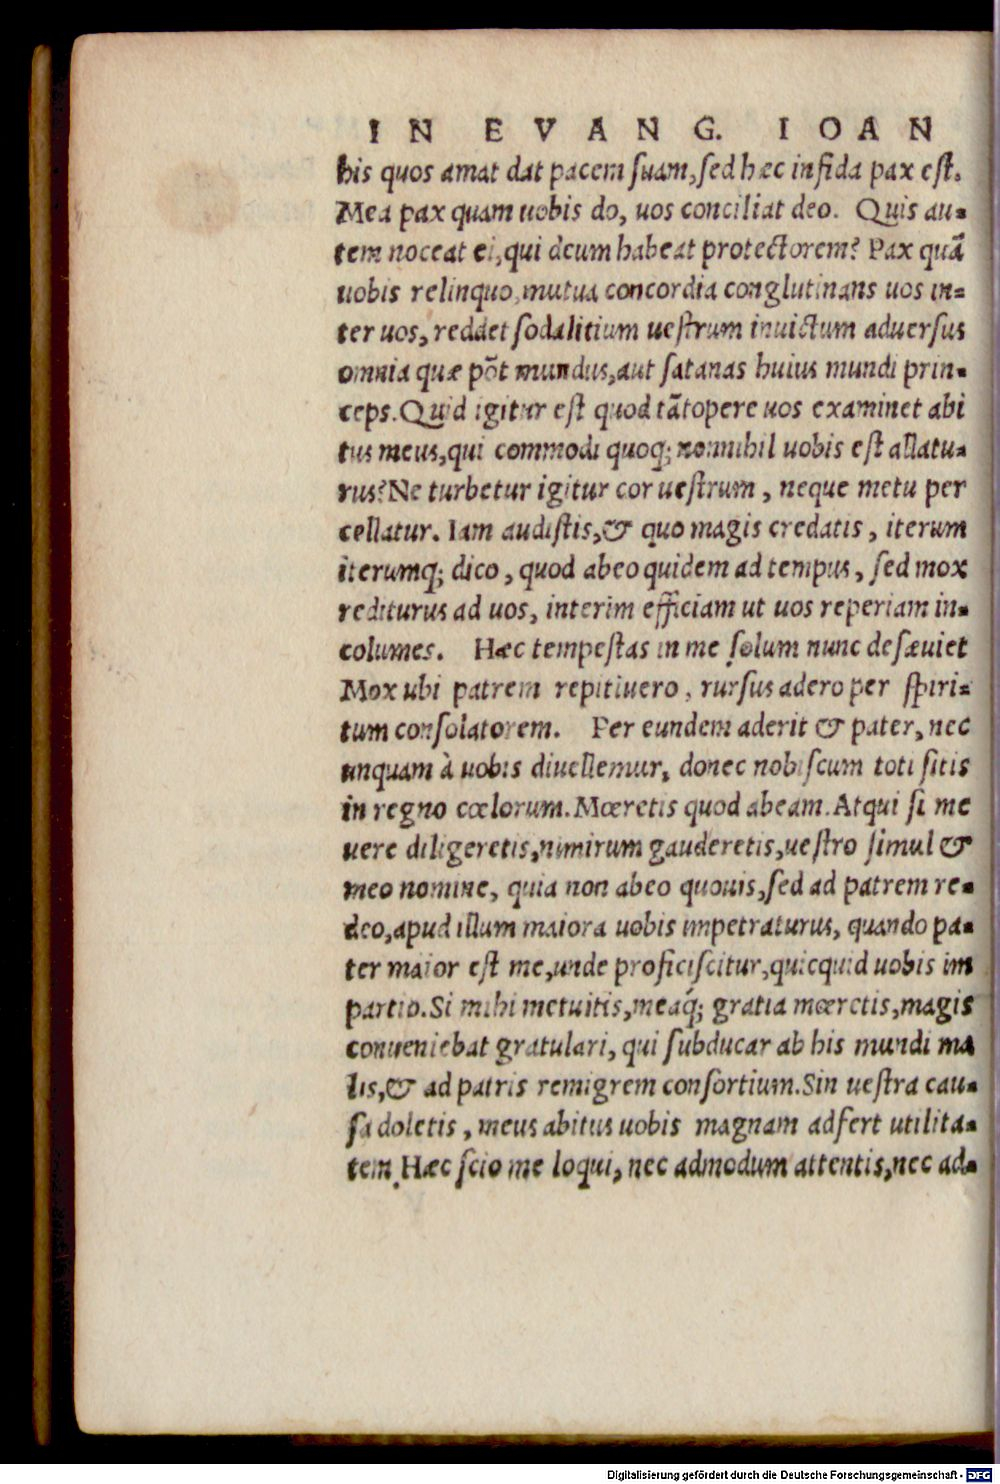 IN EVANG. IOAN
his quos amat dat pacem suam, sed hæc infida pax est.
Mea pax quam uobis do, uos conciliat deo. Quis au-
tem noceat ei, qui deum habeat protectorem? Pax quã
uobis relinquo, mutua concordia conglutinans uos in-
ter uos, reddet sodalitium uestrum inuictum aduersus
omnia quæ põt mundus, aut satanas huius mundi prin-
ceps. Quid igitur est quod tãtopere uos examinet abi
tus meus, qui commodi quoq; nonnihil uobis est allatu-
rus? Ne turbetur igitur cor uestrum, neque metu per
cellatur. Iam audistis, & quo magis credatis, iterum
iterumq; dico, quod abeo quidem ad tempus, sed mox
rediturus ad uos, interim efficiam ut uos reperiam in-
columes. Hæc tempestas in me solum nunc desæuiet
Mox ubi patrem repitiuero, rursus adero per spiri-
tum consolatorem. Per eundem aderit & pater, nec
unquam à uobis diuellemur, donec nobiscum toti sitis
in regno cœlorum. Mœretis quod abeam. Atqui si me
uere diligeretis, nimirum gauderetis, uestro simul &
meo nomine, quia non abeo quouis, sed ad patrem re-
deo, apud illum maiora uobis impetraturus, quando pa-
ter maior est me, unde proficiscitur, quicquid uobis im
partio. Si mihi metuitis, meáq; gratia mœretis, magis
conueniebat gratulari, qui subducar ab his mundi ma
lis, & ad patris remigrem consortium. Sin uestra cau-
sa doletis, meus abitus uobis magnam adfert utilita-
tem. Hæc scio me loqui, nec admodum attentis, nec ad-
Digitalisierung gefördert durch die Deutsche Forschungsgemeinschaft - DFG